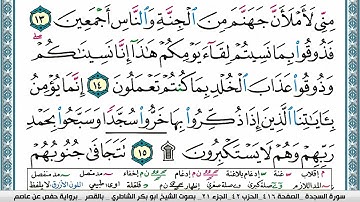 مِنِّي لَأَمْلَأَنَّ جَهَنَّمَ مِنَ الْجِنَّةِ وَالنَّاسِ أَجْمَعِينَ ١٣
فَذُوقُوا بِمَا نَسِيتُمْ لِقَاءَ يَوْمِكُمْ هَٰذَا إِنَّا نَسِينَاكُمْ
وَذُوقُوا عَذَابَ الْخُلْدِ بِمَا كُنتُمْ تَعْمَلُونَ ١٤ إِنَّمَا يُؤْمِنُ
بِآيَاتِنَا الَّذِينَ إِذَا ذُكِّرُوا بِهَا خَرُّوا سُجَّدًا وَسَبَّحُوا بِحَمْدِ
رَبِّهِمْ وَهُمْ لَا يَسْتَكْبِرُونَ ۩ ١٥ تَتَجَافَىٰ جُنُوبُهُمْ
السورة السجدة الصفحة ٤١٦ الحزب ٤٢ الجزء ٢١ بصوت الشيخ ابو بكر الشاطري برواية حفص عن عاصم